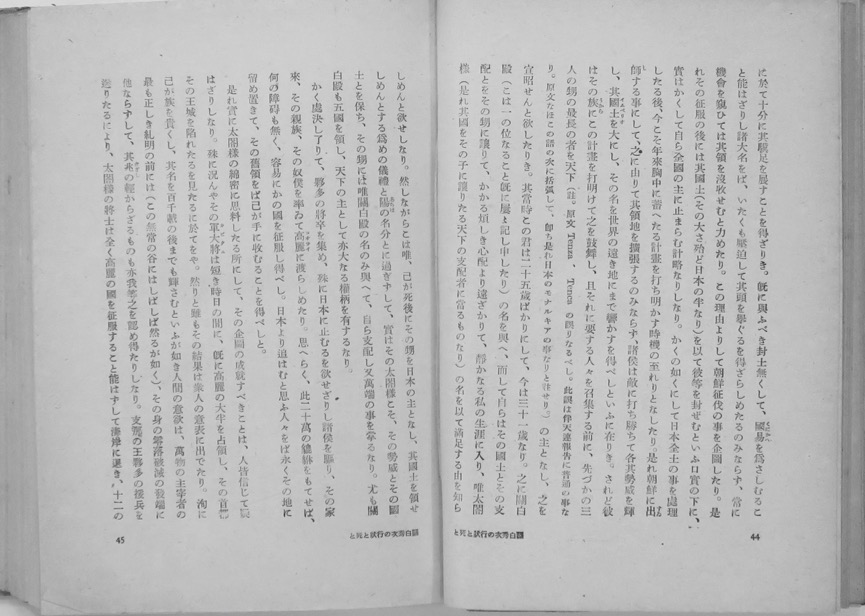 に於て十分に其驥足を展すことを得ざりき。既に與ふべき封土無くして、國易を爲さしむるこ
と能はざりし諸大名をば、いたくも壓迫して其頭を擧ぐるを得ざらしめたるのみならず、常に
機會を窺ひては其領を沒收せむと力めたり。この理由よりして朝鮮征伐の事を企圖したり。是
れその征服の後には其國土(その大さ殆ど日本の半なり)を以て彼等を封ぜむといふ口實の下に、
實はかくして自ら全國の主に止まらむ計略なりしなり。かくの如くにして日本全土の事を處理
したる後、今こそ年來胸中に蓄へたる計畫を打ち明かす時機の至れりとなしたり是れ朝鮮に出
師する事にして、之に由りて其領地を擴張するのみならず、諸侯は敵に打ち勝ちて各其勢威を輝
し、其國土を大にし、その名を世界の遠き地にまで響かすを得べしといふに在りき。されど彼
はその族にこの計畫を打明けて之を鼓舞し、且それに要する人々を召集する前に、先づかの三
人の甥の最長の者を天下(註。原文 Tenza 、 Tenca の誤りなるべし。此誤は伴天連報告に普通の事な
り。原文なほこの語の次に括弧して、卽ち是れ日本のモナルキアの事なりと注せり)の主となし、之を
宣昭せんと欲したりき。其當時この君は二十五歲ばかりにして、今は三十一歲なり。之に關白
殿(こは一の位なること既に屢〻記し申したり)の名を與へ、而して自らはその國土とその支
配とをその甥に讓りて、かかる煩しき心配より遠ざかりて、靜かなる私の生涯に入り、唯太閤
樣(是れ其國をその子に讓りたる天下の支配者に當るものなり)の名を以て滿足する由を知ら
關白秀次の行狀と死と
44
しめんと欲せしなり。然しながらこは唯、己が死後にその甥を日本の主となし、其國土を領せ
しめんとする爲めの儀禮と陽の名分とに過ぎずして、實はその太閤樣こそ、その勢威とその國
土とを保ち、その甥には唯關白殿の名のみ與へて、自ら支配し又萬端の事を掌るなり。尤も關
白殿も五國を領し、天下の主として亦大なる權柄を有するなり。
かく處決し了りて、夥多の將卒を集め、殊に日本に止むるを欲せざりし諸侯を驅り、その家
來、その親族、その奴僕を率ゐて高麗に渡らしめたり。思へらく、此二十萬の貔貅をもてせば、
何の障碍も無く、容易にかの國を征服し得べし。日本より追はむと思ふ人々をば永くその地に
留め置きて、その舊領をば己が手に收むることを得べしと。
是れ實に太閤樣の綿密に思料したる所にして、その企圖の成就すべきことは、人皆信じて疑
はざりしなり。殊に況んやその軍大將は短き時日の間に、既に高麗の大半を占領し、その首都
その王城を陷れたるを見たるに於てをや。然りと雖もその結果は衆人の意表に出でたり。洵に
己が族を貴くし、其名を百千載の後までも輝さむといふが如き人間の意欲は、萬物の主宰者の
最も正しき糺明の前には(この無常の谷にはしばしば然るが如く)、その身の零落破滅の發端に
他ならずして、其兆の輕からざるものも亦我等之を認め得たりしなり。支那の王夥多の援兵を
送りたるにより、太閤樣の將士は全く高麗の國を征服すること能はずして
關白秀次の行狀と死と
45